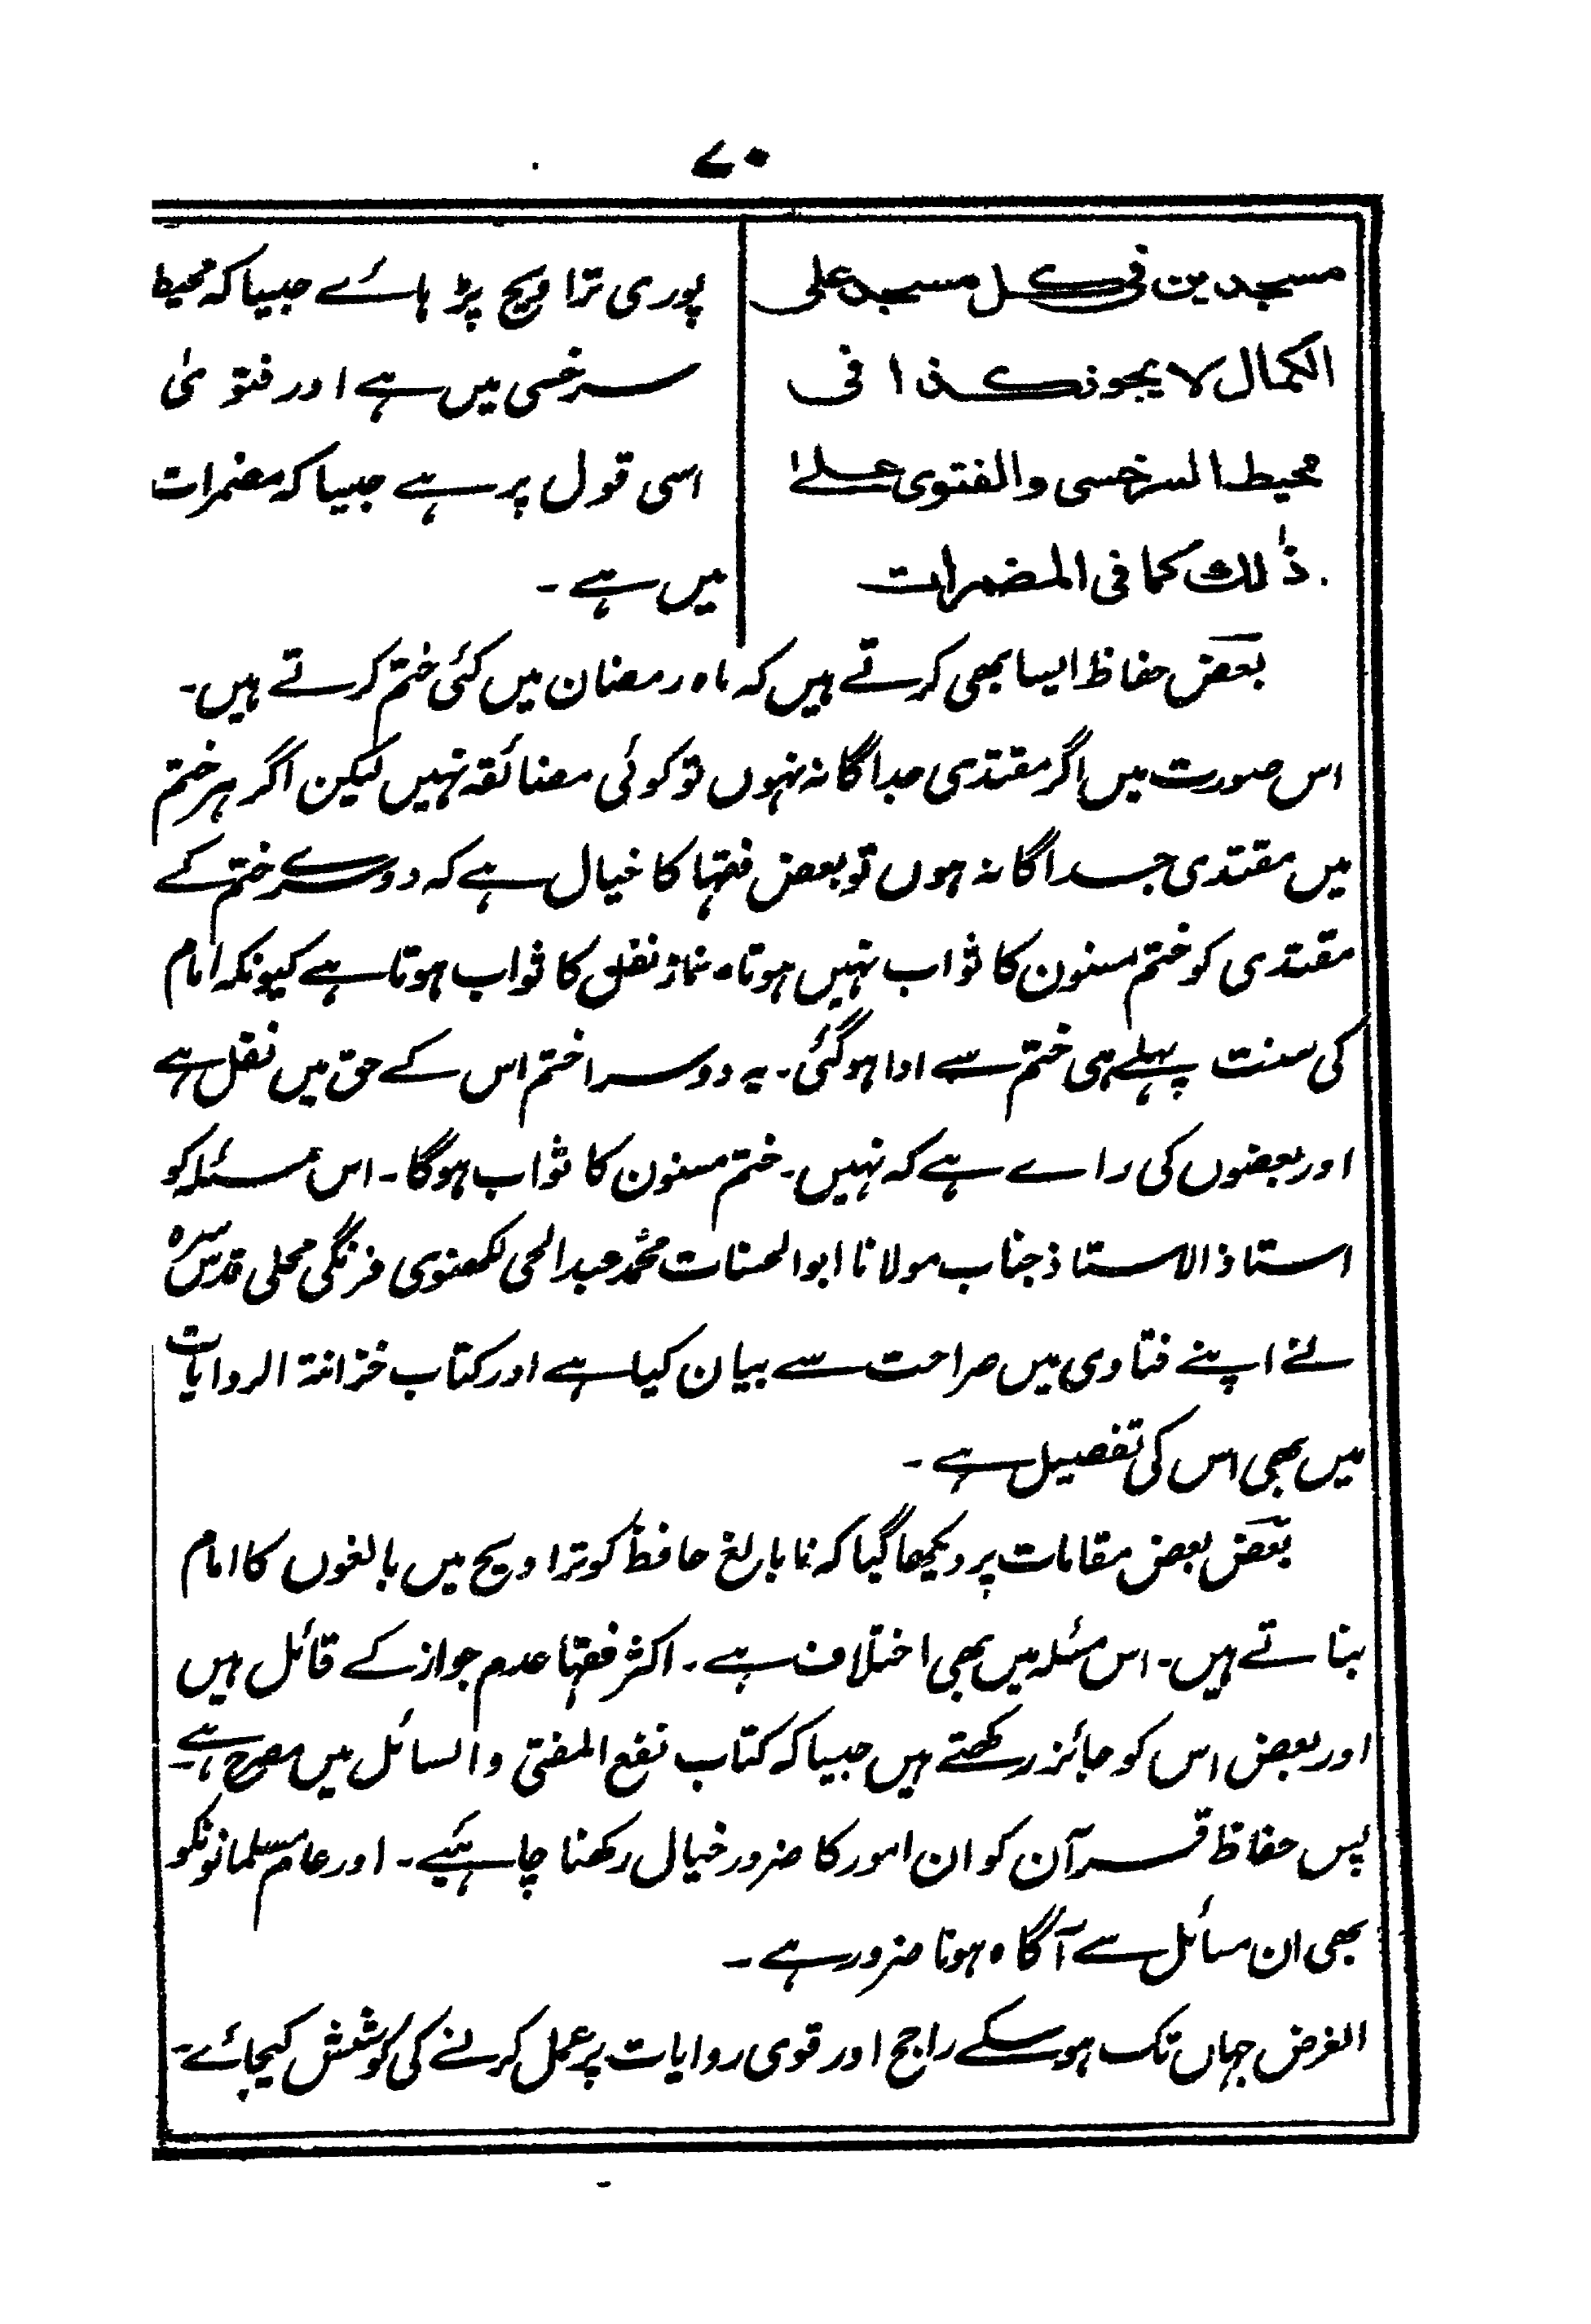 ۷۰
مسجدین فی کل مسجد علی
الکمال لا یجوز کذا فی
محیط السرخسی والفتوی علےٰ
ذٰلک کما فی المضمرات
پوری تراویح پڑہاے جیسا کہ محیط
سرخسی میں ہے اور فتویٰ
اسی قول پر ہے جیسا کہ مضمرات
میں ہے ۔
بعض حفاظ ایسا بھی کرتے ہیں کہ ماہ رمضان میں کئی ختم کرتے ہیں۔
اس صورت میں اگر مقتدی جداگانہ نہوں تو کوئی مضائقہ نہیں لیکن اگر ہر ختم
میں مقتدی جداگانہ ہوں تو بعض فقہا کا خیال ہے کہ دوسرے ختم کے
مقتدی کو ختم مسنون کا ثواب نہیں ہوتا۔ نماز نفل کا ثواب ہوتا ہے کیونکہ امام
کی سنت پہلے ہی ختم سے ادا ہوگئی ۔ یہ دوسرا ختم اس کے حق میں نفل ہے
اور بعضوں کی راے ہے کہ نہیں ۔ ختم مسنون کا ثواب ہوگا ۔ اس مسئلہ کو
استاذ الاستاذ جناب مولانا ابو الحسنات محمد عبدالحی لکھنوی فرنگی محلی قدس سرہ
نے اپنے فتاوی میں صراحت سے بیان کیا ہے اور کتاب خزانۃ الروایات
میں بھی اس کی تفصیل ہے ۔
بعض بعض مقامات پر دیکھا گیا کہ نابالغ حافظ کو تراویح میں بالغوں کا امام
بناتے ہیں ۔ اس مسئلہ میں بھی اختلاف ہے ۔ اکثر فقہا عدم جواز کے قائل ہیں
اور بعض اس کو جائز رکھتے ہیں جیسا کہ کتاب نفع المفتی والسائل میں مصرح ہے ۔
پس حفاظ قرآن کو ان امور کا ضرور خیال رکھنا چاہئیے ۔ اور عام مسلمانونکو
بھی ان مسائل سے آگاہ ہونا ضرور ہے ۔
الغرض جہاں تک ہوسکے راجح اور قوی روایات پر عمل کرنے کی کوشش کیجائے ۔